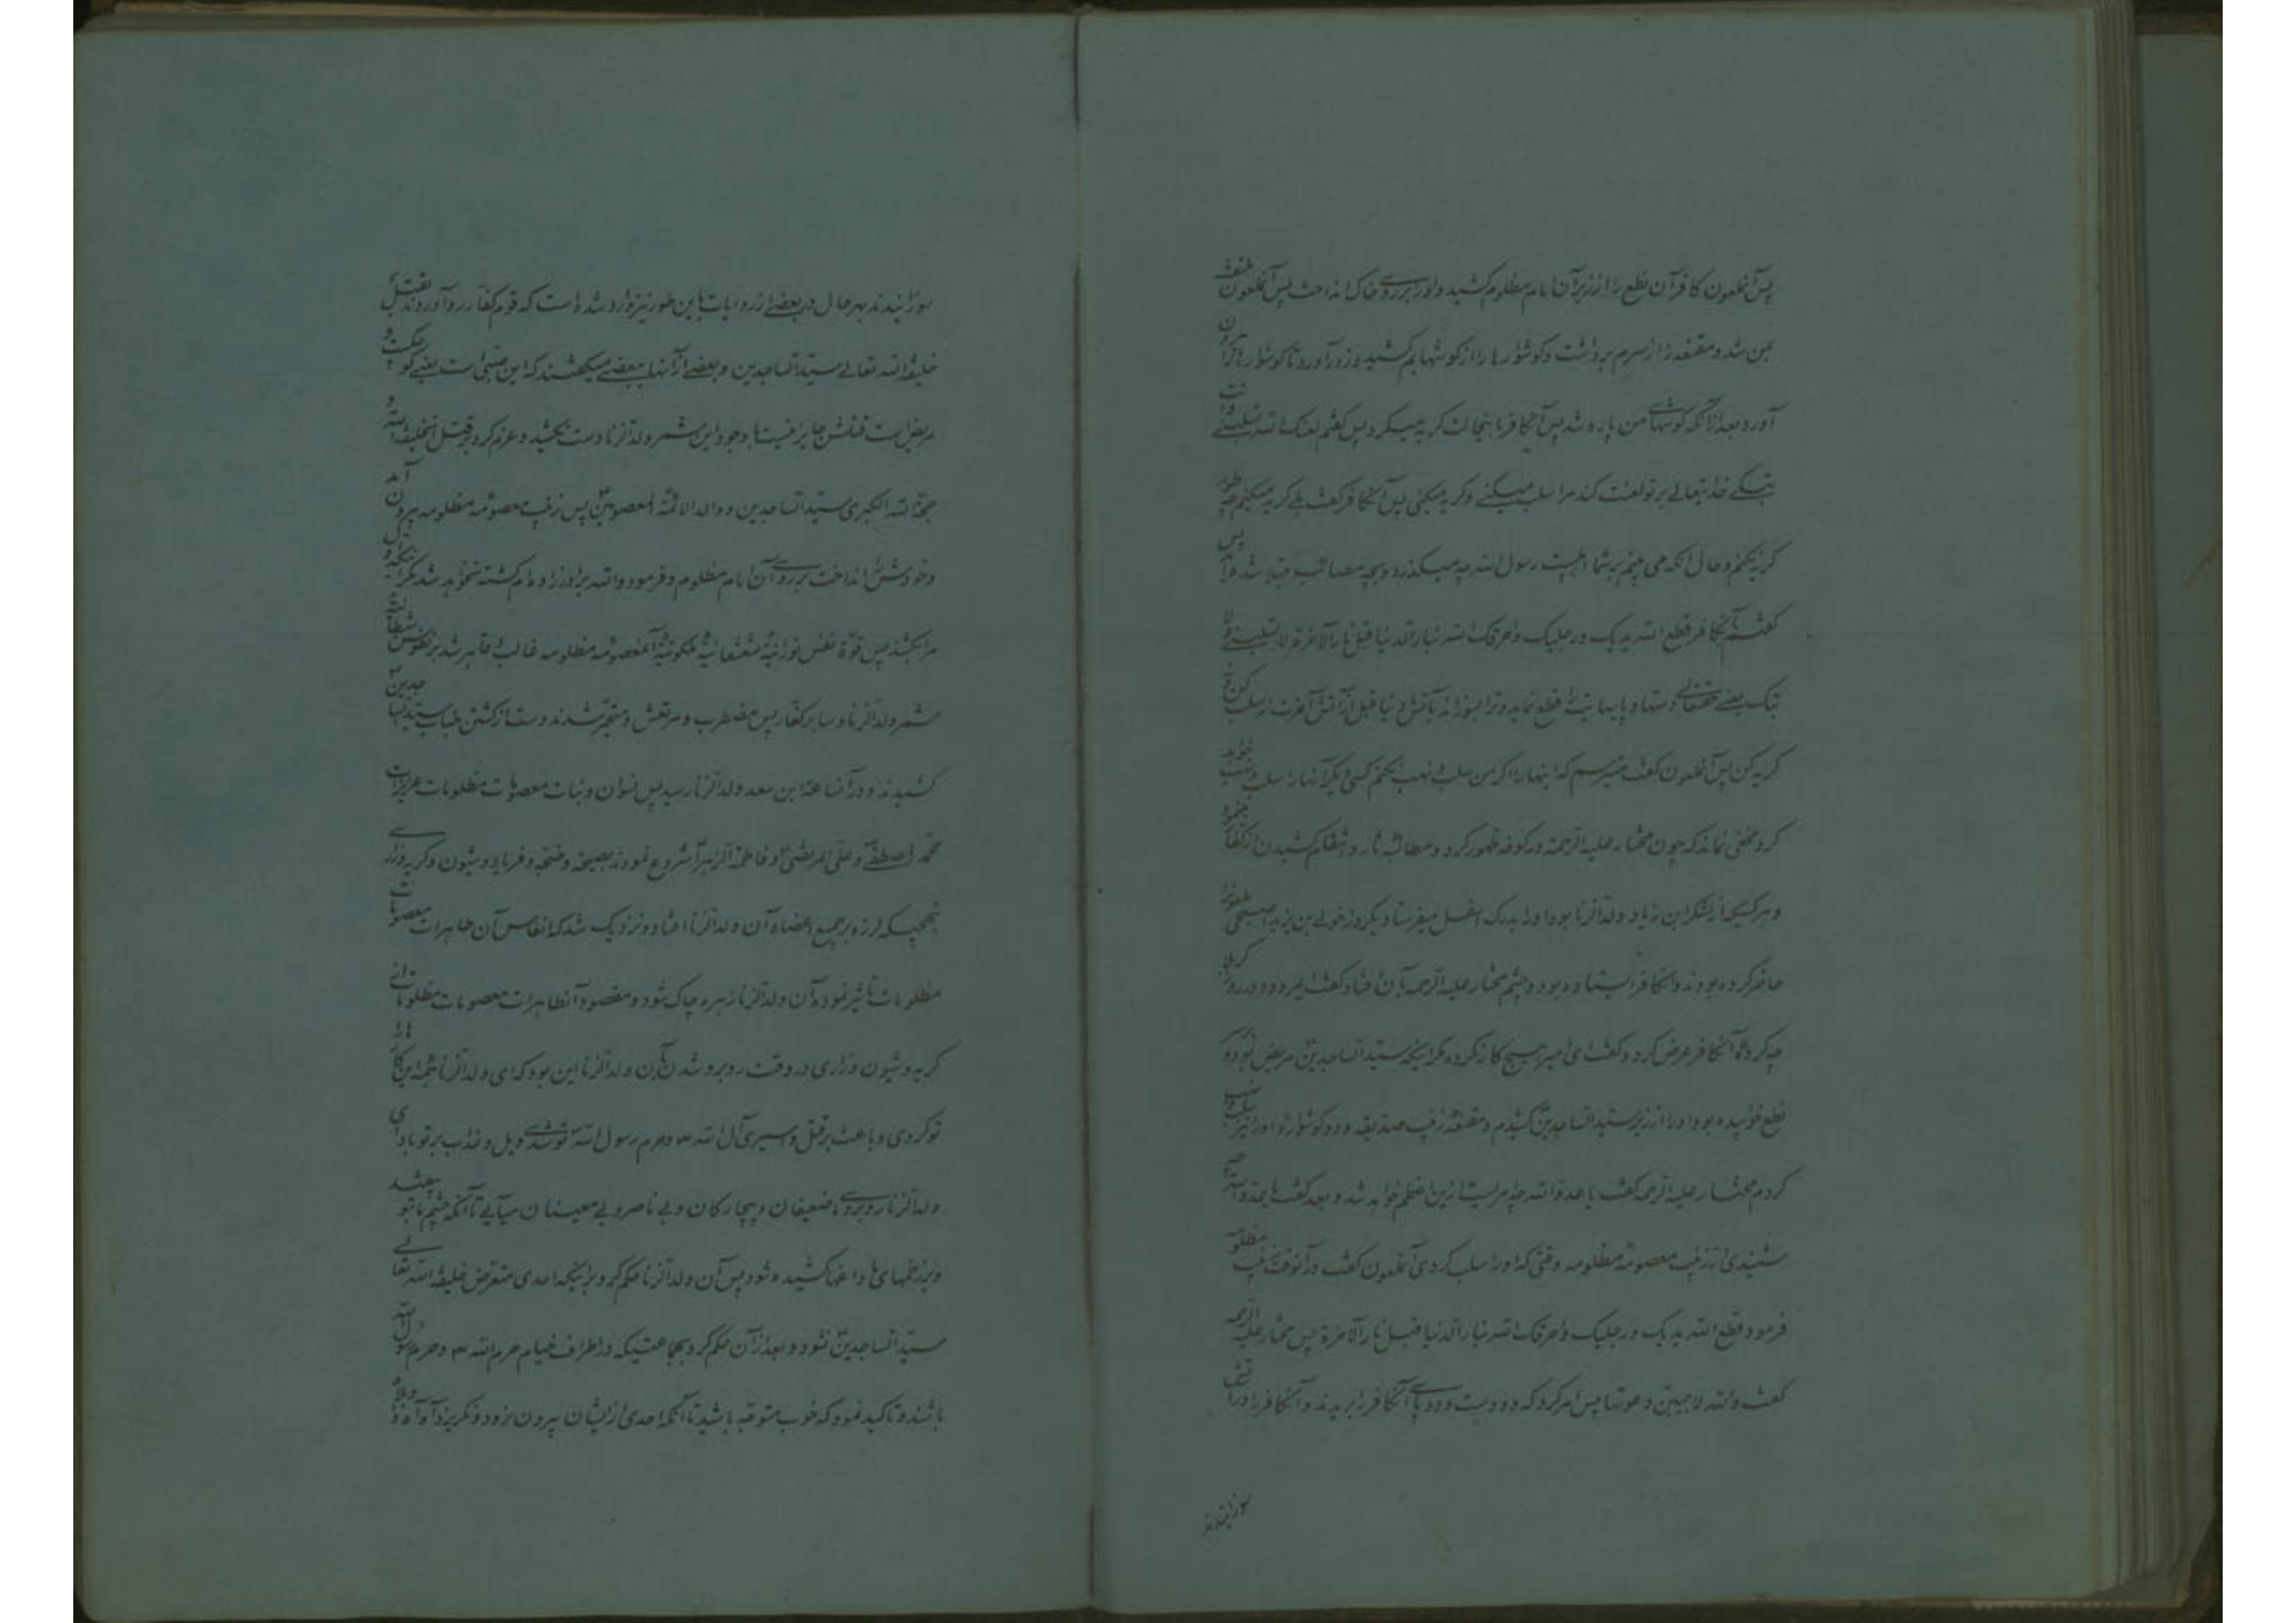 پس آنملعون کافر آن نطع را از زیر آن امام مظلوم کشید و او را بر روی خاک انداخت پس آنملعون ملتفت
بمن شد و مقنعه را از سرم برداشت و گوشوارها را از گوشهایم کشید و زور آورد تا گوشوارها را بیرون
آورد بعد از آنکه گوشهای من پاره شد پس آنکافر با اینحالت گریه میکرد پس گفتم لعنک الله تسلبنی و انت
تبکی خدایتعالی بر تو لعنت کند مرا سلب میکنی و گریه میکنی پس آنکافر گفت بلی گریه میکنم چه طور
گریه نکنم و حال آنکه می بینم بر شما اهلبیت رسول الله چه میگذرد و بچه مصائب مبتلا شده اید پس
گفتم آنکافر قطع الله یدیک و رجلیک و احرقک الله بنار الدنیا قبل نار الآخرة لا تسلبنی ولا
تبک یعنی حقتعالی دستها و پاهایت را قطع نماید و ترا بسوزاند بآتش دنیا قبل از آتش آخرت نه سلب کن و نه
گریه کن پس آنملعون گفت میترسم که اینها را اگر من سلب و نهب نکنم کسی دیگر آنها را سلب و نهب خواهد
کرد مخفی نماند که چون مختار علیه الرحمة در کوفه ظهور کرد و مطالبه ثار و انتقام کشیدن از کفار مینمود
و هر کسیکه از لشکر ابن زیاد ولد الزنا بود او را بدرک اسفل میفرستاد یکروز خولی بن یزید اصبحی ملعونرا
حاضر کرده بودند و آنکافر ایستاده بود و چشم مختار علیه الرحمه بآن افتاد گفت ایمردود در روز کربلا
چه کرده آنکافر عرض کرد و گفت ای امیر هیچ کار نکرده ام مگر اینکه سیّد الساجدین مریض بود و بر سر
نطع خوابیده بود او را از زیر سیّد الساجدین کشیدم و مقنعه زینب صدیقه و دو گوشواره او را نیز سلب
کردم مختار علیه الرحمه گفت یا عدو الله چه امریست ازین اعظم خواهد شد و بعد گفت ایمردود چه
شنیدی از زینب معصومه مظلومه وقتی که او را سلب کردی آنملعون گفت در آنوقت زینب مظلومه
فرمود قطع الله یدیک و رجلیک و احرقک الله بنار الدنیا قبل نار الآخرة پس مختار علیه الرحمه
گفت والله لاجیبن دعوتها پس امر کرد که دو دست و دو پای آنکافر را بریدند و آنکافر را در آتش
سوزانیدند
سوزانیدند بهر حال در بعضی از روایات باین طور نیز وارد شده است که قوم کفار رو آوردند بقتل
خلیفة الله تعالی سیّد الساجدین و بعضی از آنها ببعضی میگفتند که این صبی است یعنی کودکست و
مریض است قتلش جایز نیست با وجود این شمر ولد الزنا دست نکشید و عزم کرد بر قتل آنخلیفة الله و
حجة الله الکبری سیّد الساجدین و والد الائمّة المعصومین پس زینب معصومه مظلومه بیرون آمد
و خودش را انداخت بر روی آن امام مظلوم و فرمود والله برادرزاده ام کشته نخواهد شد مگر اینکه اول
مرا بکشند پس قوّة نفس نورانیّة شعشعانیّة ملکوتیّة آنمعصومه مظلومه غالب و قاهر شد بر نفوس شیطانیّة
شمر ولد الزنا و سایر کفار پس مضطرب و مرتعش و متحیّر شدند دست از کشتن جناب سیّد الساجدین
کشیدند و در آنساعة ابن سعد ولد الزنا رسید پس نسوان و بنات معصومات مظلومات عزیزات
محمّد المصطفی و علی المرتضی و فاطمة الزهرا شروع نمودند بصیحه و ضجّه و فریاد و شیون و گریه و زاری
بنحویکه لرزه بر جمیع اعضاء آن ولد الزنا افتاد و نزدیک شد که انفاس آن طاهرات معصومات
مظلومات تأثیر نموده آن ولد الزنا زهره چاک شود و مقصود آنطاهرات معصومات مظلومات از
گریه و شیون و زاری در وقت روبرو شدن بآن ولد الزنا این بود که ای ولد الزنا همه این کارها را
تو کردی و باعث بر قتل و اسیری آل الله و حرم رسول الله تو شدی ویل و عذاب بر تو باد ای
ولد الزنا روبروی ما ضعیفان و بیچارگان و بی ناصر و بی معینان میآیی تا آنکه چشم ما بتو بیفتد
و بر زخمهای ما داغها کشیده شود پس آن ولد الزنا حکم کرد بر اینکه احدی متعرض خلیفة الله تعالی
سیّد الساجدین نشود و بعد از آن حکم کرد بجماعتیکه در اطراف خیام حرم الله و حرم رسول الله
باشند و تاکید نمود که خوب متوجّه باشید تا آنکه احدی از ایشان بیرون نرود و نگریزد آه آه